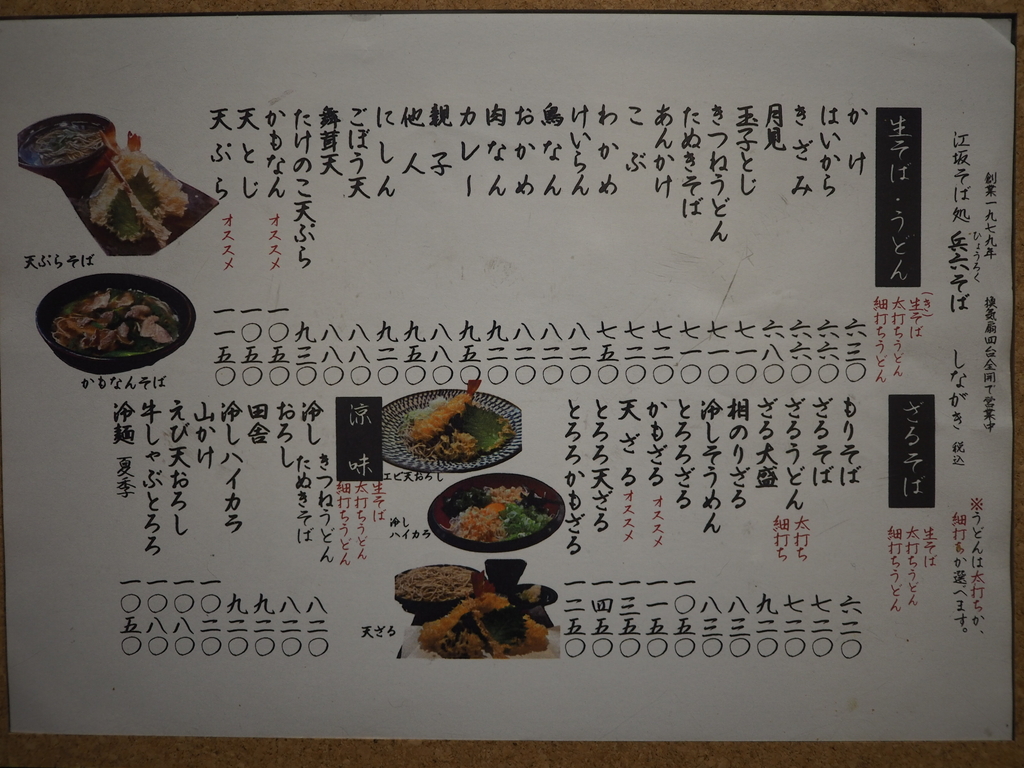 ※うどんは太打ちか、
細打ちか選べます。
創業一九七九年 換気扇四台全開で営業中
ひょうろく
江坂そば処 兵六そば しながき 税込
生そば・うどん
(き)
生そば
太打ちうどん
細打ちうどん
かけ 六三〇
はいから 六六〇
きざみ 六六〇
月見 六八〇
玉子とじ 七一〇
きつねうどん 七一〇
たぬきそば 七一〇
あんかけ 七二〇
こぶ 七二〇
わかめ 七五〇
けいらん 八二〇
鳥なん 八二〇
おかめ 八二〇
肉なん 九二〇
カレー 八五〇
親子 八八〇
他人 九五〇
にしん 九二〇
ごぼう天 八八〇
舞茸天 八八〇
たけのこ天ぷら 九三〇
かもなん オススメ 一〇五〇
天とじ 一〇五〇
天ぷら オススメ 一一五〇
天ぷらそば
かもなんそば
ざるそば
生そば
太打ちうどん
細打ちうどん
もりそば 六二〇
ざるそば 七二〇
ざるうどん 太打ち 細打ち 七二〇
ざる大盛 九二〇
相のりざる 八三〇
冷しそうめん 八三〇
とろろざる 一〇五〇
かもざる オススメ 一一五〇
天ざる オススメ 一三五〇
とろろ天ざる 一四五〇
とろろかもざる 一二五〇
エビ天おろし
冷し
ハイカラ
天ざる
涼味
生そば
太打ちうどん
細打ちうどん
冷し きつねうどん たぬきそば 八二〇
おろし 八二〇
田舎 九二〇
冷しハイカラ 九二〇
山かけ 一〇二〇
えび天おろし 一〇八〇
牛しゃぶとろろ 一〇八〇
冷麺 夏季 一〇五〇